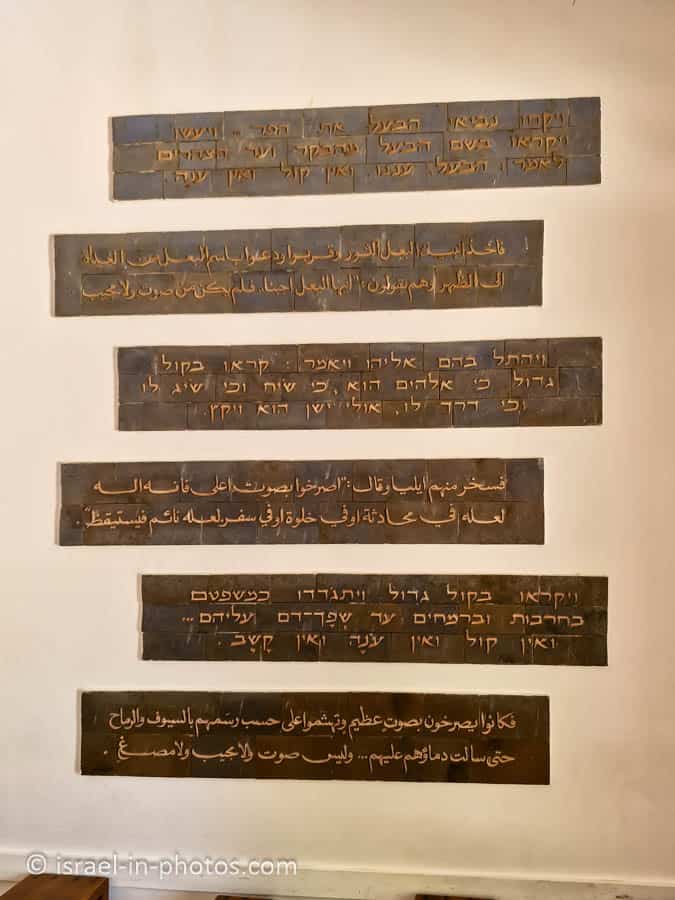 ויקחו נביאי הבעל את הפר ... ויעשו
ויקראו בשם הבעל מהבקר ועד הצהרים
לאמר: הבעל, עננו. ואין קול ואין ענה.
فأخذ أنبياء البعل الثور وقربوا ودعوا باسم البعل من الغداة
الى الظهر وهم يقولون: "أيها البعل أجبنا. فلم يكن من صوت ولا مجيب
ויהתל בהם אליהו ויאמר: קראו בקול
גדול כי אלהים הוא, כי שיח וכי שיג לו
וכי דרך לו, אולי ישן הוא ויקץ.
فسخر منهم ايليا وقال: "اصرخوا بصوت اعلى فانه اله
لعله في محادثة او في خلوة او في سفر، لعله نائم فيستيقظ".
ויקראו בקול גדול ויתגדדו כמשפטם
בחרבות וברמחים עד שפך־דם עליהם...
ואין קול ואין ענה ואין קשב.
فكانوا يصرخون بصوت عظيم وتهشموا على حسب رسمهم بالسيوف والرماح
حتى سالت دماؤهم عليهم... وليس صوت ولا مجيب ولا مصغ.
© israel-in-photos.com